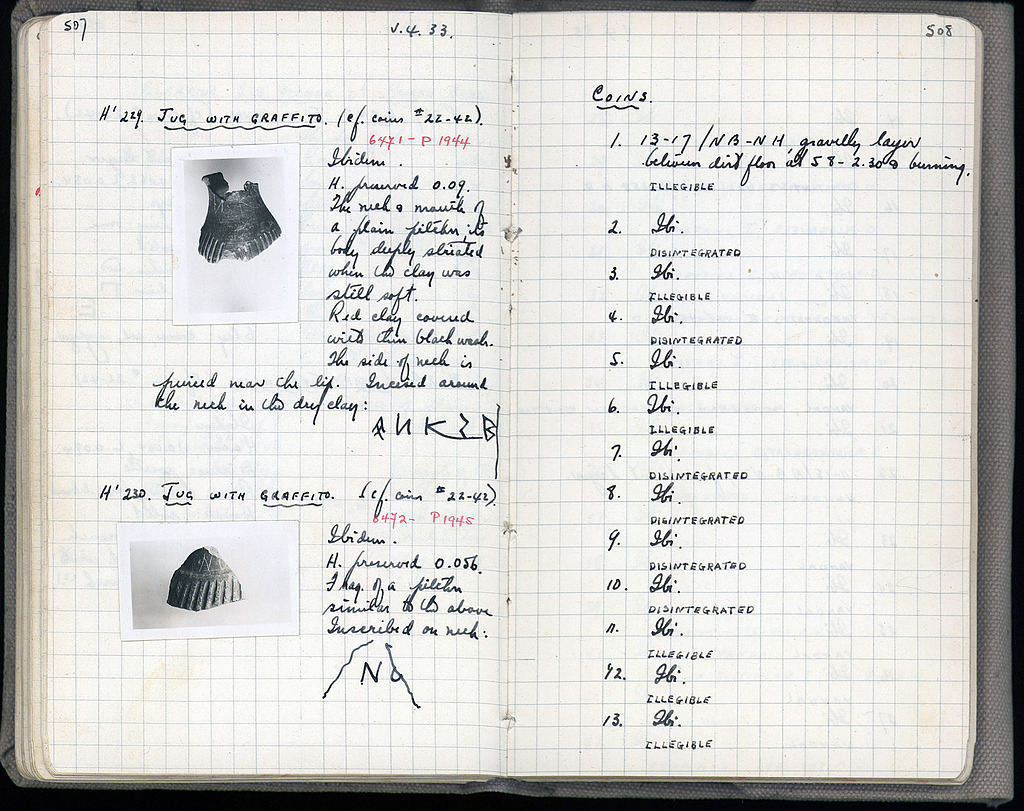 507
V.4.33.
H' 229. JUG WITH GRAFFITO. (cf. coins #22-42).
6471 - P 1944
Ibidem.
H. preserved 0.09.
The neck & mouth of
a plain pitcher, its
body deeply striated
when the clay was
still soft.
Red clay covered
with thin black wash.
The side of neck is
pierced near the lip. Incised around
the neck in the dry clay:
H' 230. JUG WITH GRAFFITO. (cf. coins #22-42).
6472 - P 1945
Ibidem.
H. preserved 0.056.
Frag. of a pitcher
similar to the above
Inscribed on neck:
N
508
COINS.
1. 13-17/NB-NH, gravelly layer
between dirt floor at 58-2.30 & burning.
ILLEGIBLE
2. Ibi.
DISINTEGRATED
3. Ibi.
ILLEGIBLE
4. Ibi.
DISINTEGRATED
5. Ibi.
ILLEGIBLE
6. Ibi.
ILLEGIBLE
7. Ibi.
DISINTEGRATED
8. Ibi.
DISINTEGRATED
9. Ibi.
DISINTEGRATED
10. Ibi.
DISINTEGRATED
11. Ibi.
ILLEGIBLE
12. Ibi.
ILLEGIBLE
13. Ibi.
ILLEGIBLE